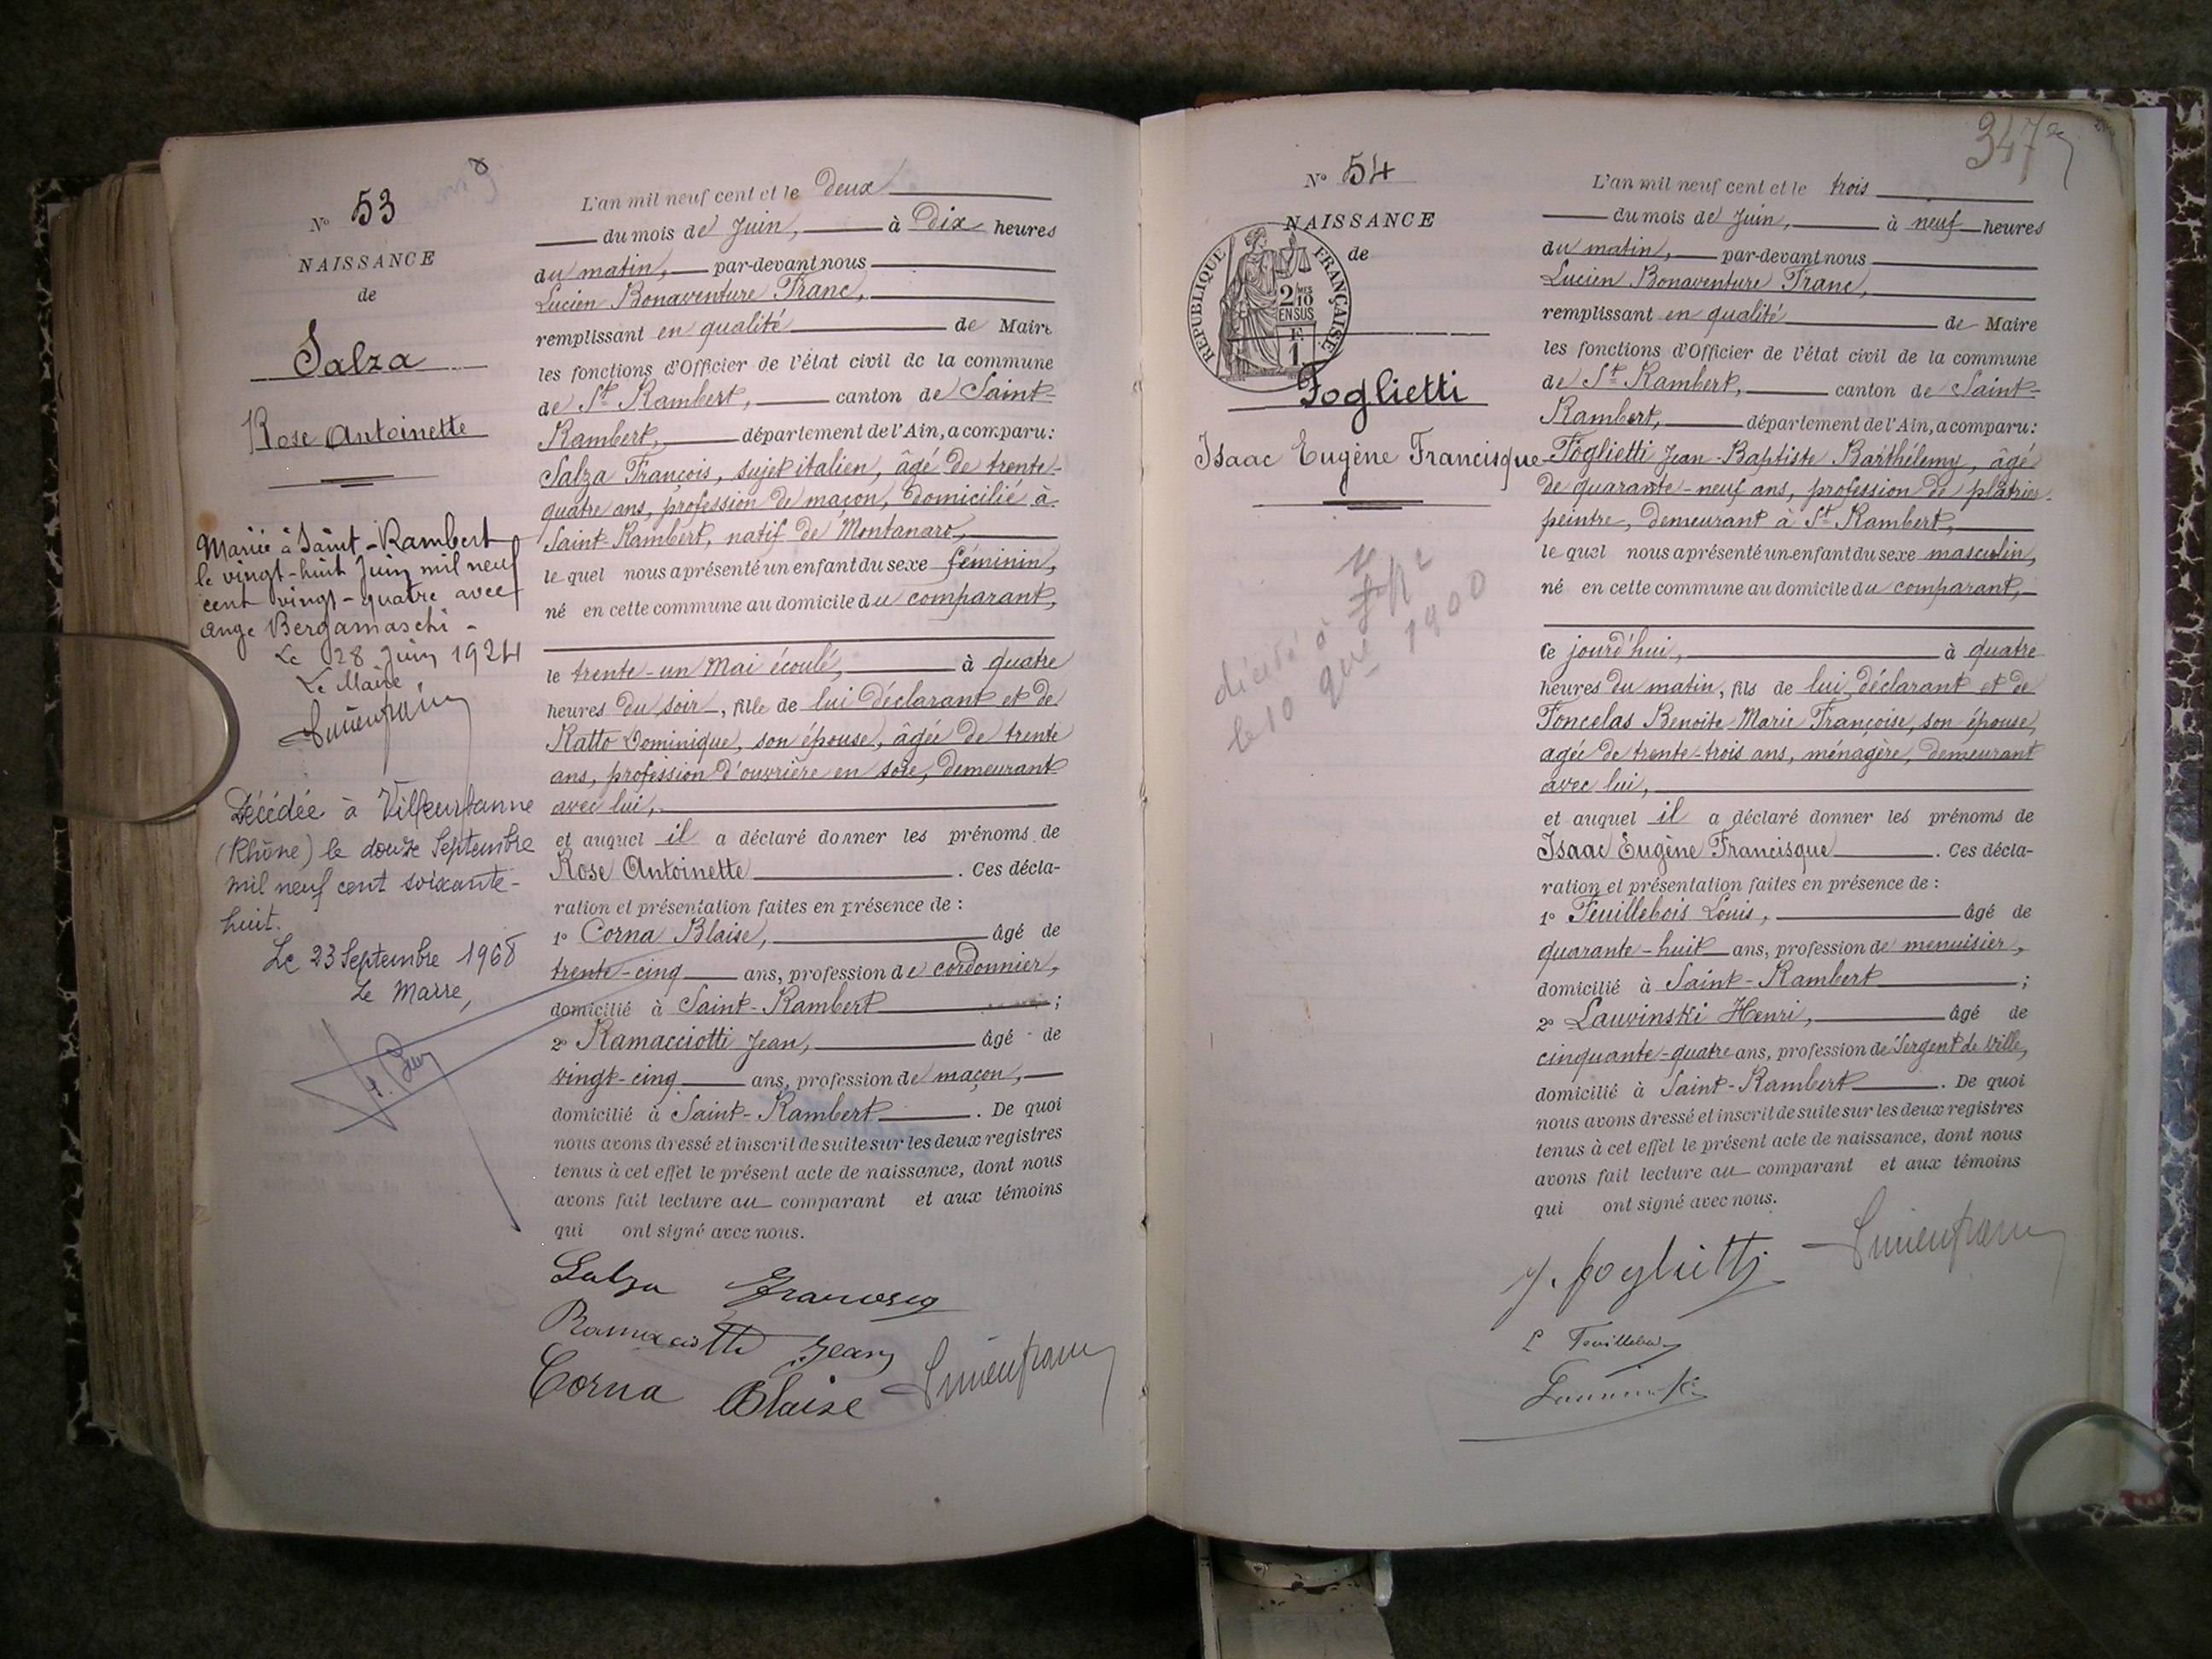 N° 53
NAISSANCE
de
Salza
Rose Antoinette
Mariée à Saint-Rambert
le vingt-huit Juin mil neuf
cent vingt-quatre avec
Ange Bergamaschi -
Le 28 Juin 1924
Le Maire
Décédée à Villeurbanne
(Rhône) le douze Septembre
mil neuf cent soixante-
huit.
Le 23 Septembre 1968
Le Maire,
L'an mil neuf cent et le Deux
du mois de Juin, à Dix heures
du matin, par-devant nous
Lucien Bonaventure Franc,
remplissant en qualité de Maire
les fonctions d'Officier de l'état civil de la commune
de St Rambert, canton de Saint-
Rambert, département de l'Ain, a comparu:
Salza François, sujet italien, âgé de trente-
quatre ans, profession de maçon, domicilié à
Saint-Rambert, natif de Montanaro,
le quel nous a présenté un enfant du sexe féminin,
né en cette commune au domicile du comparant,
le trente-un Mai écoulé, à quatre
heures du soir, fille de lui déclarant et de
Ratto Dominique, son épouse, âgée de trente
ans, profession d'ouvrière en soie, demeurant
avec lui,
et auquel il a déclaré donner les prénoms de
Rose Antoinette. Ces décla-
ration et présentation faites en présence de :
1° Corna Blaise, âgé de
trente-cinq ans, profession de cordonnier,
domicilié à Saint-Rambert ;
2° Ramacciotti Jean, âgé de
vingt-cinq ans, profession de maçon,
domicilié à Saint-Rambert. De quoi
nous avons dressé et inscrit de suite sur les deux registres
tenus à cet effet le présent acte de naissance, dont nous
avons fait lecture au comparant et aux témoins
qui ont signé avec nous.
Salza Francesco
Ramaciotti Jean
Corna Blaise Lucien Franc
347
N° 54
NAISSANCE
de
RÉPUBLIQUE FRANÇAISE
2 MES
10
EN SUS
F.
1
Foglietti
Isaac Eugène Francisque
décédé à
le 10 1900
L'an mil neuf cent et le trois
du mois de Juin, à neuf heures
du matin, par-devant nous
Lucien Bonaventure Franc,
remplissant en qualité de Maire
les fonctions d'Officier de l'état civil de la commune
de St Rambert, canton de Saint-
Rambert, département de l'Ain, a comparu:
Foglietti Jean-Baptiste Barthélemy, âgé
de quarante-neuf ans, profession de plâtrier-
peintre, demeurant à St Rambert,
le quel nous a présenté un enfant du sexe masculin,
né en cette commune au domicile du comparant,
ce jourd'hui, à quatre
heures du matin, fils de lui déclarant et de
Foncelas Benoite Marie Françoise, son épouse,
agée de trente-trois ans, ménagère, demeurant
avec lui,
et auquel il a déclaré donner les prénoms de
Isaac Eugène Francisque. Ces décla-
ration et présentation faites en présence de :
1° Feuillebois Louis, âgé de
quarante-huit ans, profession de menuisier,
domicilié à Saint-Rambert ;
2° Lauvinski Henri, âgé de
cinquante-quatre ans, profession de Sergent de ville,
domicilié à Saint-Rambert. De quoi
nous avons dressé et inscrit de suite sur les deux registres
tenus à cet effet le présent acte de naissance, dont nous
avons fait lecture au comparant et aux témoins
qui ont signé avec nous.
J. Foglietti Lucien Franc
L Feuillebois
Lauvinski